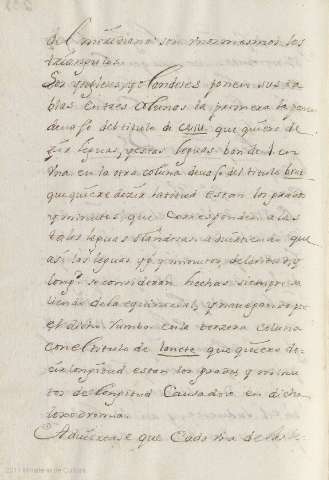 del meridiano son mermamos los
triangulos.
Los yngleses, y olandeses ponen sus ta
blas en tres colunas la primera la ponen
devajo del titulo de que quiere de
zir leguas, y estas leguas son de 1 cor
una en la otra coluna devajo del titulo bre
que quiere dezir latitud estan los grados
y minutos, que corresponden a las
tales leguas olandesas advirtiendo que
asi las leguas y g. y minutos, de latitud, y
long. se consideran hechas siempre sa
liendo de la equinocial, y navegando por
el dicho rumbo en la tersera coluna
con el titulo de lancte que quiere de
zir longitud estan los grados y minu
tos de longitud causados en dicha
loxodromia.
Adviertase que cada una de las
2011 Ministerio de Cultura